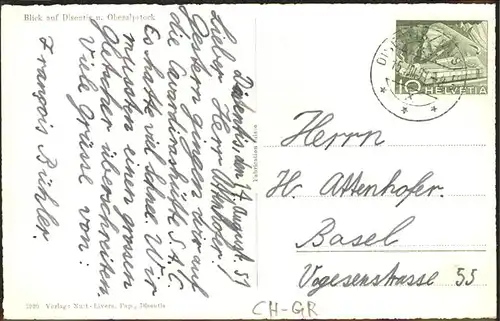 Blick auf Disentis u. Oberalpstock
Disentis, den 14. August. 51
Lieber Herr Attenhofer!
Gestern gingen wir auf
die Cavardirashütte S.A.C.
Es hatte viel Schnee. Wir
mussten einen grossen
Gletscher überschreiten
Viele Grüsse von:
François Bühler.
10 HELVETIA
Herrn
H. Attenhofer.
Basel
Vogesenstrasse 55
Verlag: Kurt-Livers, Pap., Disentis
CH-GR